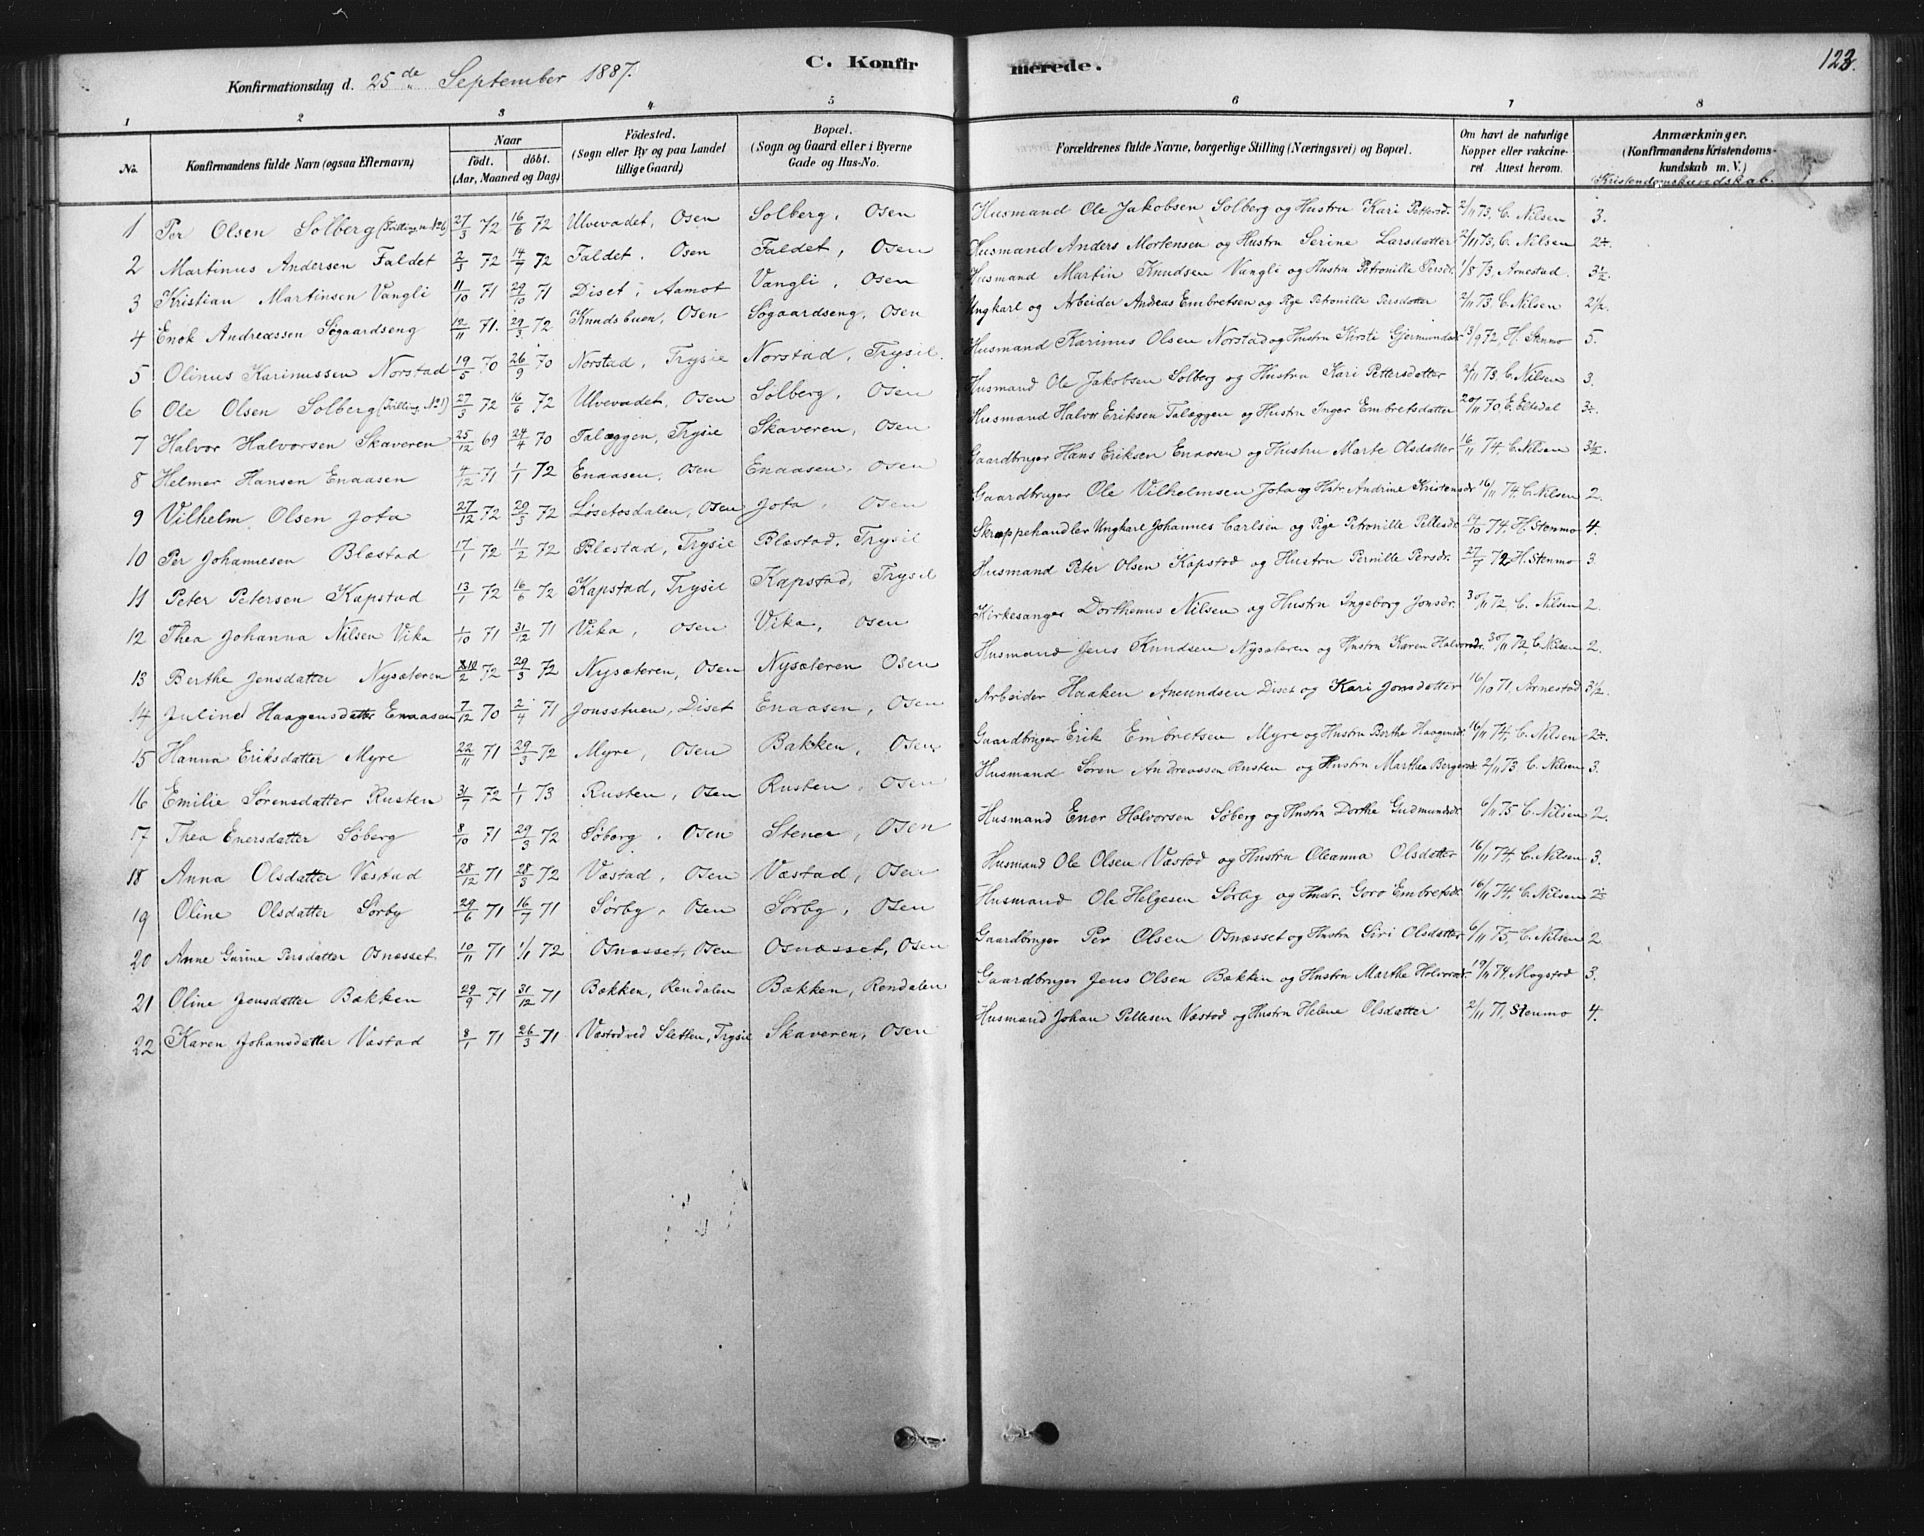 123.
C. Konfirmerede.
Konfirmationsdag d. 25de September 1887.
1 2 3 4 5 6 7 8
No. Konfirmandens fulde Navn (ogsaa Efternavn) Naar födt. döbt. (Aar, Maaned og Dag) Födested. (Sogn eller By og paa Landet tillige Gaard) Bopæl. (Sogn og Gaard eller i Byerne Gade og Hus-No. Forældrenes fulde Navne, borgerlige Stilling (Næringsvei) og Bopæl. Om havt de naturlige Kopper eller vakcineret Attest herom. Anmærkninger. (Konfirmandens Kristendomskundskab m. V.) Kristendomskundskab.
1 Per Olsen Solberg (Tvilling No 6) 27/3 72 16/6 72 Ulvevadet, Osen Solberg, Osen Husmand Ole Jakobsen Solberg og Hustru Kari Pettersd. 2/11 73, C. Nilsen 3.
2 Martinus Andersen Faldet 2/3 72 14/7 72 Faldet, Osen Faldet, Osen Husmand Anders Mortensen og Hustru Serine Larsdatter 2/11 73, C. Nilsen
3 Kristian Martinsen Vangli 11/10 71 29/10 71 Diset, Aamot Vangli, Osen Husmand Martin Knudsen Vangli og Hustru Petronille Persdt. 1/8 73, Arnestad.
4 Enok Andreassen Søgaardseng 12/11 71. 29/3 72 Knudsbuen, Osen Søgaardseng, Osen Ungkarl og Arbeider Andreas Embretsen og Pige Petronille Persdatter 2/11 73. C. Nilsen 2½.
5 Olinus Karinussen Norstad 19/5 70 26/9 70 Norstad, Trysil Norstad, Trysil. Husmand Karinus Olsen Norstad og Hustru Kirsti Gjermundsd. 3/9 72, H. Stenmo 5.
6 Ole Olsen Solberg (Tvilling No 1) 27/3 72 16/6 72 Ulvevadet, Osen Solberg, Osen Husmand Ole Jakobsen Solberg og Hustru Kari Pettersdatter 2/11 73, C. Nilsen 3.
7 Halvor Halvorsen Skaveren 25/12 69 24/4 70 Talæggen, Trysil Skaveren, Osen Husmand Halvor Eriksen Talæggen og Hustru Inger Embretsdatter 20/11 70
8 Helmer Hansen Enaasen 4/12 71 1/1 72 Enaasen, Osen Enaasen, Osen Gaardbruger Hans Eriksen Enaasen og Hustru Marte Olsdatter 16/11 74, C. Nilsen 3½.
9 Vilhelm Olsen Jota 27/12 72 29/3 72 Løsetosdalen, Osen Jota, Osen Gaardbruger Ole Vilhelmsen Jota og Hstr. Andrine Kristensdr. 16/11 74, C. Nilsen 2.
10 Per Johannesen Blæstad 17/1 72 11/2 72 Blæstad, Trysil Blæstad, Trysil Skræppehandler Ungkarl Johannes Carlsen og Pige Petronille Pettersdr. 74, H. Stenmo 4.
11 Peter Petersen Kapstad 13/1 72 16/6 72 Kapstad, Trysil Kapstad, Trysil Husmand Peter Olsen Kapstad og Hustru Pernille Persdr. 27/7 72 H. Stenmo 3.
12 Thea Johanna Nilsen Vika 1/10 71 31/12 71 Vika, Osen Vika, Osen Kirkesanger Dorthenus Nilsen og Hustru Ingeborg Jonsdr. 30/11 72, C. Nilsen 2.
13 Berthe Jensdatter Nysæteren 72 29/3 72 Nysæteren, Osen Nysæteren Osen Husmand Jens Knudsen Nysæteren og Hustru Karen Halvorsdr. 30/11 72 C. Nilsen 2.
14 Juline Haagensdatter Enaasen 7/12 70 2/4 71 Jonsstuen, Diset Enaasen, Osen Arbeider Haaken Amundsen Diset og Kari Jonsdatter 16/10 71, Arnestad 3½.
15 Hanna Eriksdatter Myre 22/11 71 29/3 72 Myre, Osen Bakken, Osen Gaardbruger Erik Embretsen Myre og Hustru Berthe Haagensd. 16/11 74, C. Nilsen
16 Emilie Sørensdatter Rusten 31/7 72 1/1 73 Rusten, Osen Rusten, Osen Husmand Søren Andreassen Rusten og Hustru Marthea Bergersd. 2/11 73 C. Nilsen 3.
17 Thea Enersdatter Søberg 8/10 71 29/3 72 Søberg, Osen Stener, Osen Husmand Ener Halvorsen Søberg og Hustru Dorthe Gudmundsdr. 6/11 75 C. Nilsen 2.
18 Anna Olsdatter Væstad 28/12 71 28/3 72 Væstad, Osen Væstad, Osen Husmand Ole Olsen Væstad og Hustru Oleanna Olsdatter 16/11 74, C. Nilsen 3.
19 Oline Olsdatter Sørby 29/6 71 16/7 71 Sørby, Osen Sørby, Osen Husmand Ole Helgesen Sørby og Hustr. Goro Embretsdr. 16/11 74, C. Nilsen
20 Anne Gurine Persdatter Osnæsset 10/11 71 1/1 72 Osnæsset, Osen Osnæsset, Osen Gaardbruger Per Olsen Osnæsset og Hustru Siri Olsdatter 6/11 75, C. Nilsen 2.
21 Oline Jensdatter Bakken 29/9 71 31/12 71 Bakken, Rendalen Bakken, Rendalen Gaardbruger Jens Olsen Bakken og Hustru Marthe Halvorsdr. 19/11 74, Mogstad 3.
22 Karen Johansdatter Væstad 8/1 71 26/3 71 Væstad ved Sletten, Trysil Skaveren, Osen Husmand Johan Pettersen Væstad og Hustru Helene Olsdatter 2/11 71, Stenmo 4.